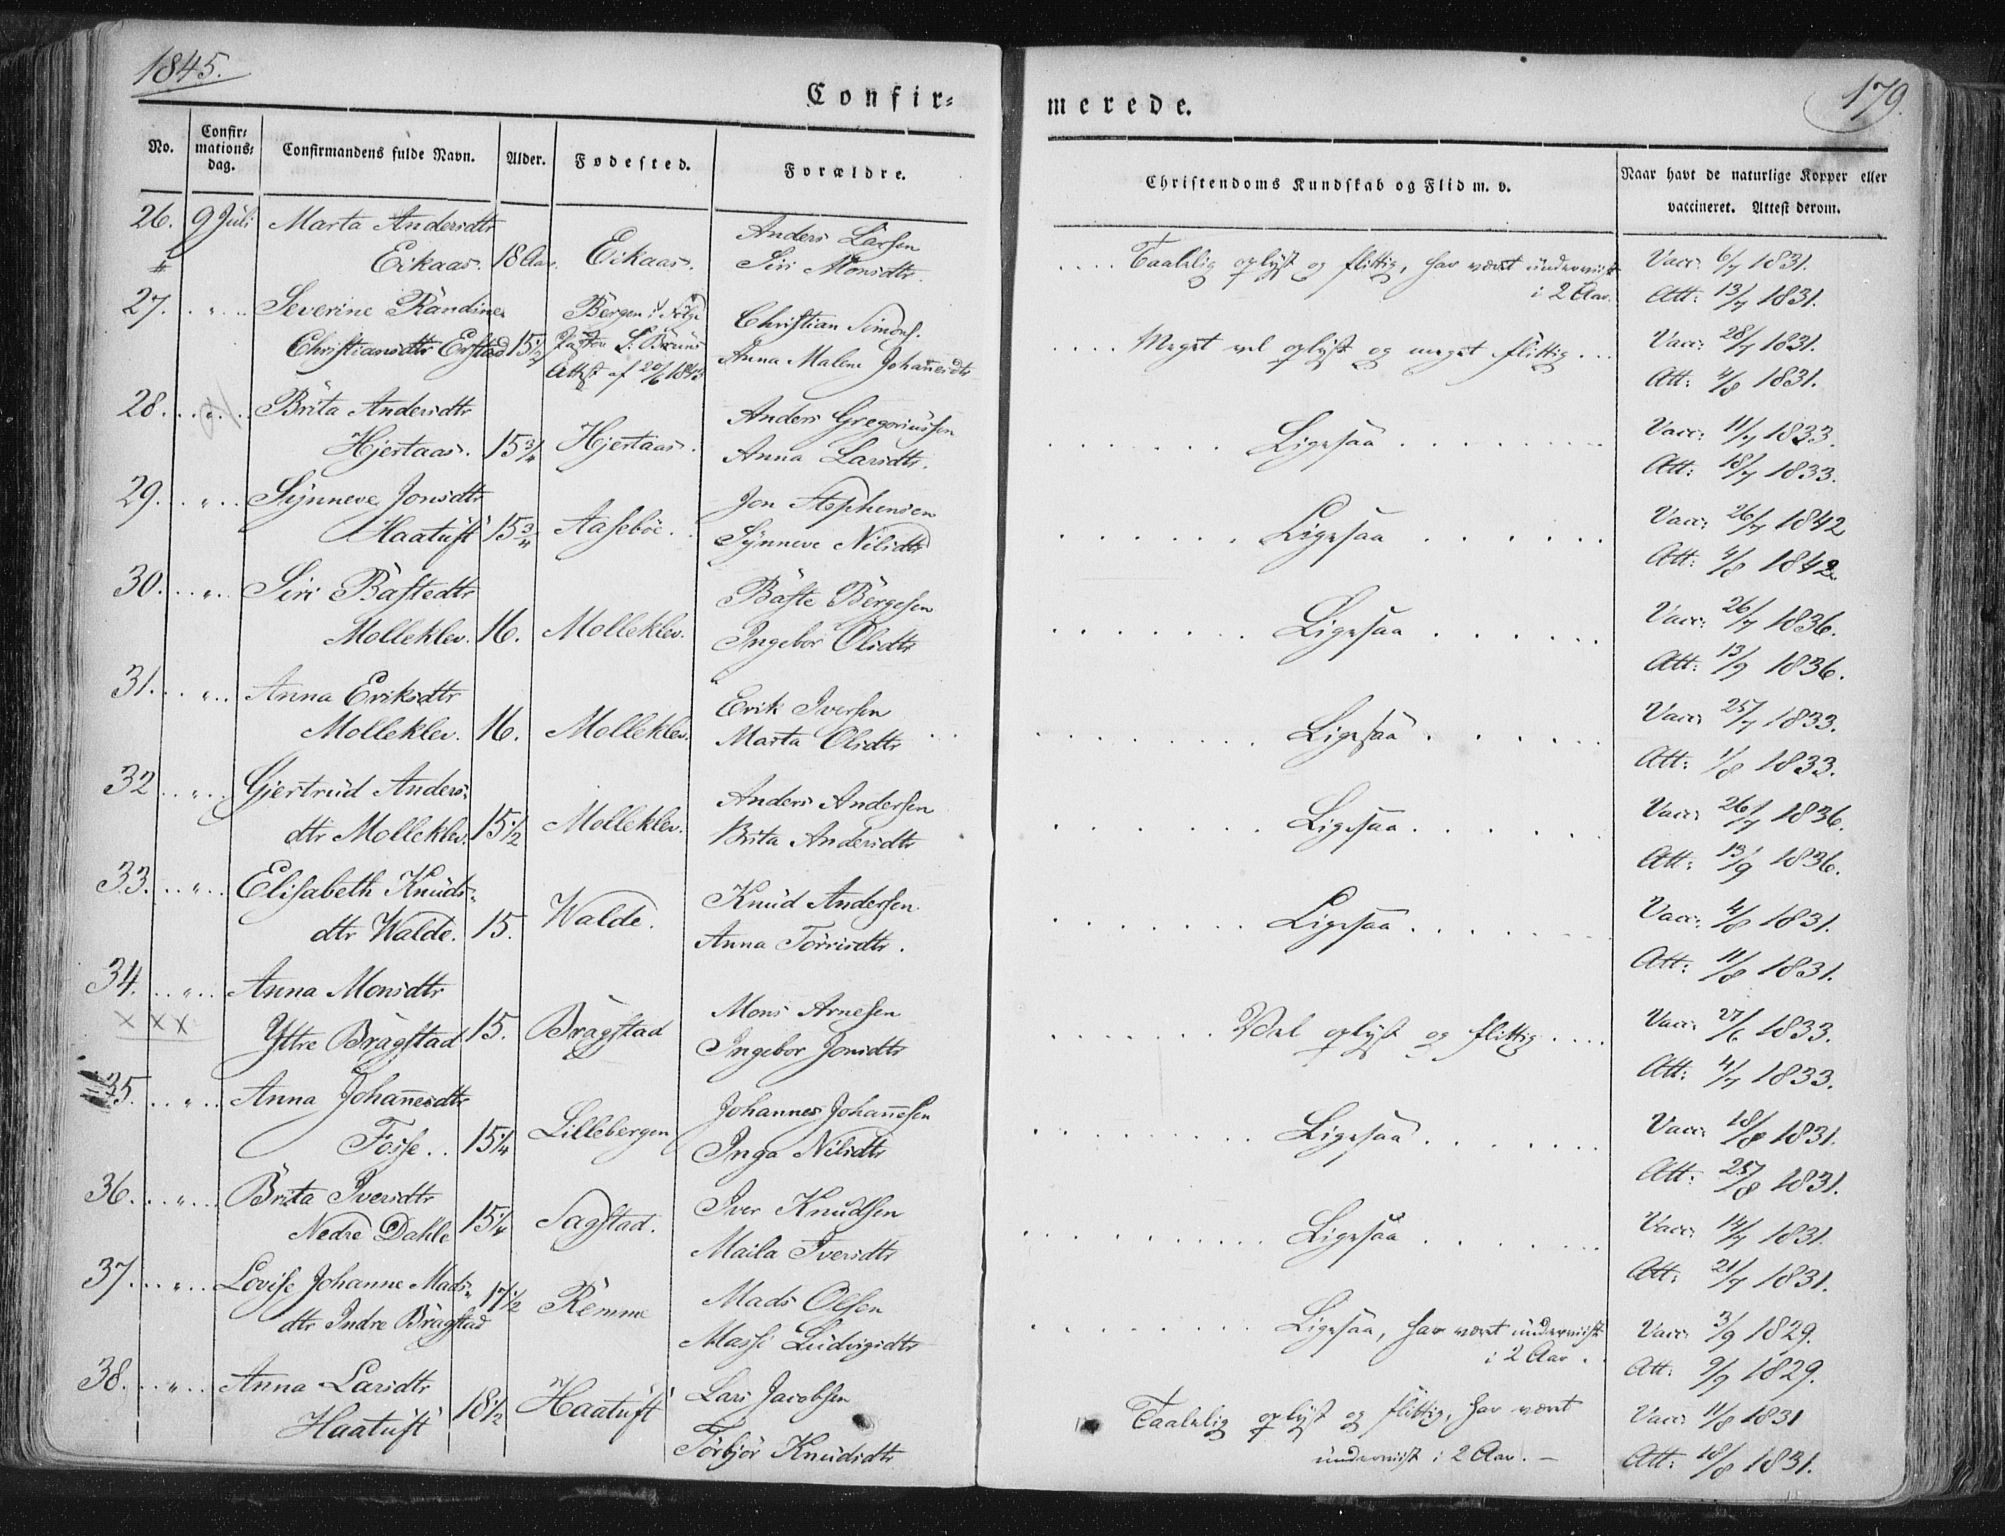 1845.
179.
Confir=
merede.
No.
Confir=
mations=
dag.
Confirmandens fulde Navn.
Alder.
Fødested.
Forældre.
Christendoms Kundskab og Flid m. v.
Naar havt de naturlige Kopper eller
vaccineret. Attest derom.
26. 9 Juli Marta Andersdtr
Eikaas. 18 Aar. Eikaas.
Anders Larsen
Siri Monsdtr
Taalelig oplyst og flittig, har været underviist
i 2 Aar.
Vacc: 6/7 1831.
Att: 13/7 1831.
27. " Severine Randine
Christiansdtr Erstad 15 1/2
Bergen i Følge
Attest af 20/6 1845
Christian Simons.
Anna Malene Johannesdtr
Meget vel oplyst og meget flittig
Vacc: 28/7 1831.
Att: 4/8 1831.
28. " Brita Andersdtr
Hjertaas. 15 3/4 Hjertaas.
Anders Gregoriussen
Anna Larsdtr.
Ligesaa
Vacc: 11/7 1833.
Att: 18/7 1833.
29. " Synneve Jonsdtr
Haatuft 15 3/4 Aasebøe.
Jon Stephensen
Synneve Nilsdtr
Ligesaa
Vacc: 26/7 1842
Att: 4/8 1842.
30. " Siri Bastedtr
Molleklev. 16. Molleklev.
Baste Børgesen
Ingebor Olsdtr
Ligesaa
Vacc: 26/7 1836.
Att: 13/9 1836.
31. " Anna Eriksdtr
Molleklev. 16. Molleklev.
Erik Iversen
Marta Olsdtr
Ligesaa
Vacc: 25/7 1833.
Att: 1/8 1833.
32 " Gjertrud Anders=
dtr Molleklev. 15 1/2 Molleklev.
Anders Andersen
Brita Andersdtr
Ligesaa
Vacc: 26/7 1836.
Att: 13/9 1836.
33. " Elisabeth Knuds=
dtr Walde. 15. Walde.
Knud Andersen
Anna Torrisdtr.
Ligesaa
Vacc: 4/8 1831.
Att: 11/8 1831.
34. " Anna Monsdtr
xxx
Yttre Bragstad 15. Bragstad
Mons Arnesen
Ingebor Jonsdtr
Vel oplyst og flittig
Vacc: 27/6 1833.
Att: 4/7 1833.
35. " Anna Johannesdtr
Fosse 15 1/4 Lillebergen
Johannes Johannesen
Inga Nilsdtr
Ligesaa
Vacc: 18/8 1831.
Att: 25/8 1831.
36. " Brita Iversdtr
Nedre Dahle 15 1/4 Sagstad.
Iver Knudsen
Maila Iversdtr
Ligesaa
Vacc: 14/7 1831.
Att: 21/7 1831.
37. " Lovise Johanne Mads=
dtr Indre Bragstad 17 1/2 Remme
Mads Olsen
Massi Ludvigsdtr
Ligesaa, har været underviist
i 2 Aar.
Vacc: 3/9 1829.
Att: 9/9 1829.
38. " Anna Larsdtr
Haatuft 18 1/2 Haatuft
Lars Jacobsen
Torbjør Knudsdtr
Taalelig oplyst og flittig, har været
underviist i 2 Aar.
Vacc: 11/8 1831
Att: 18/8 1831.